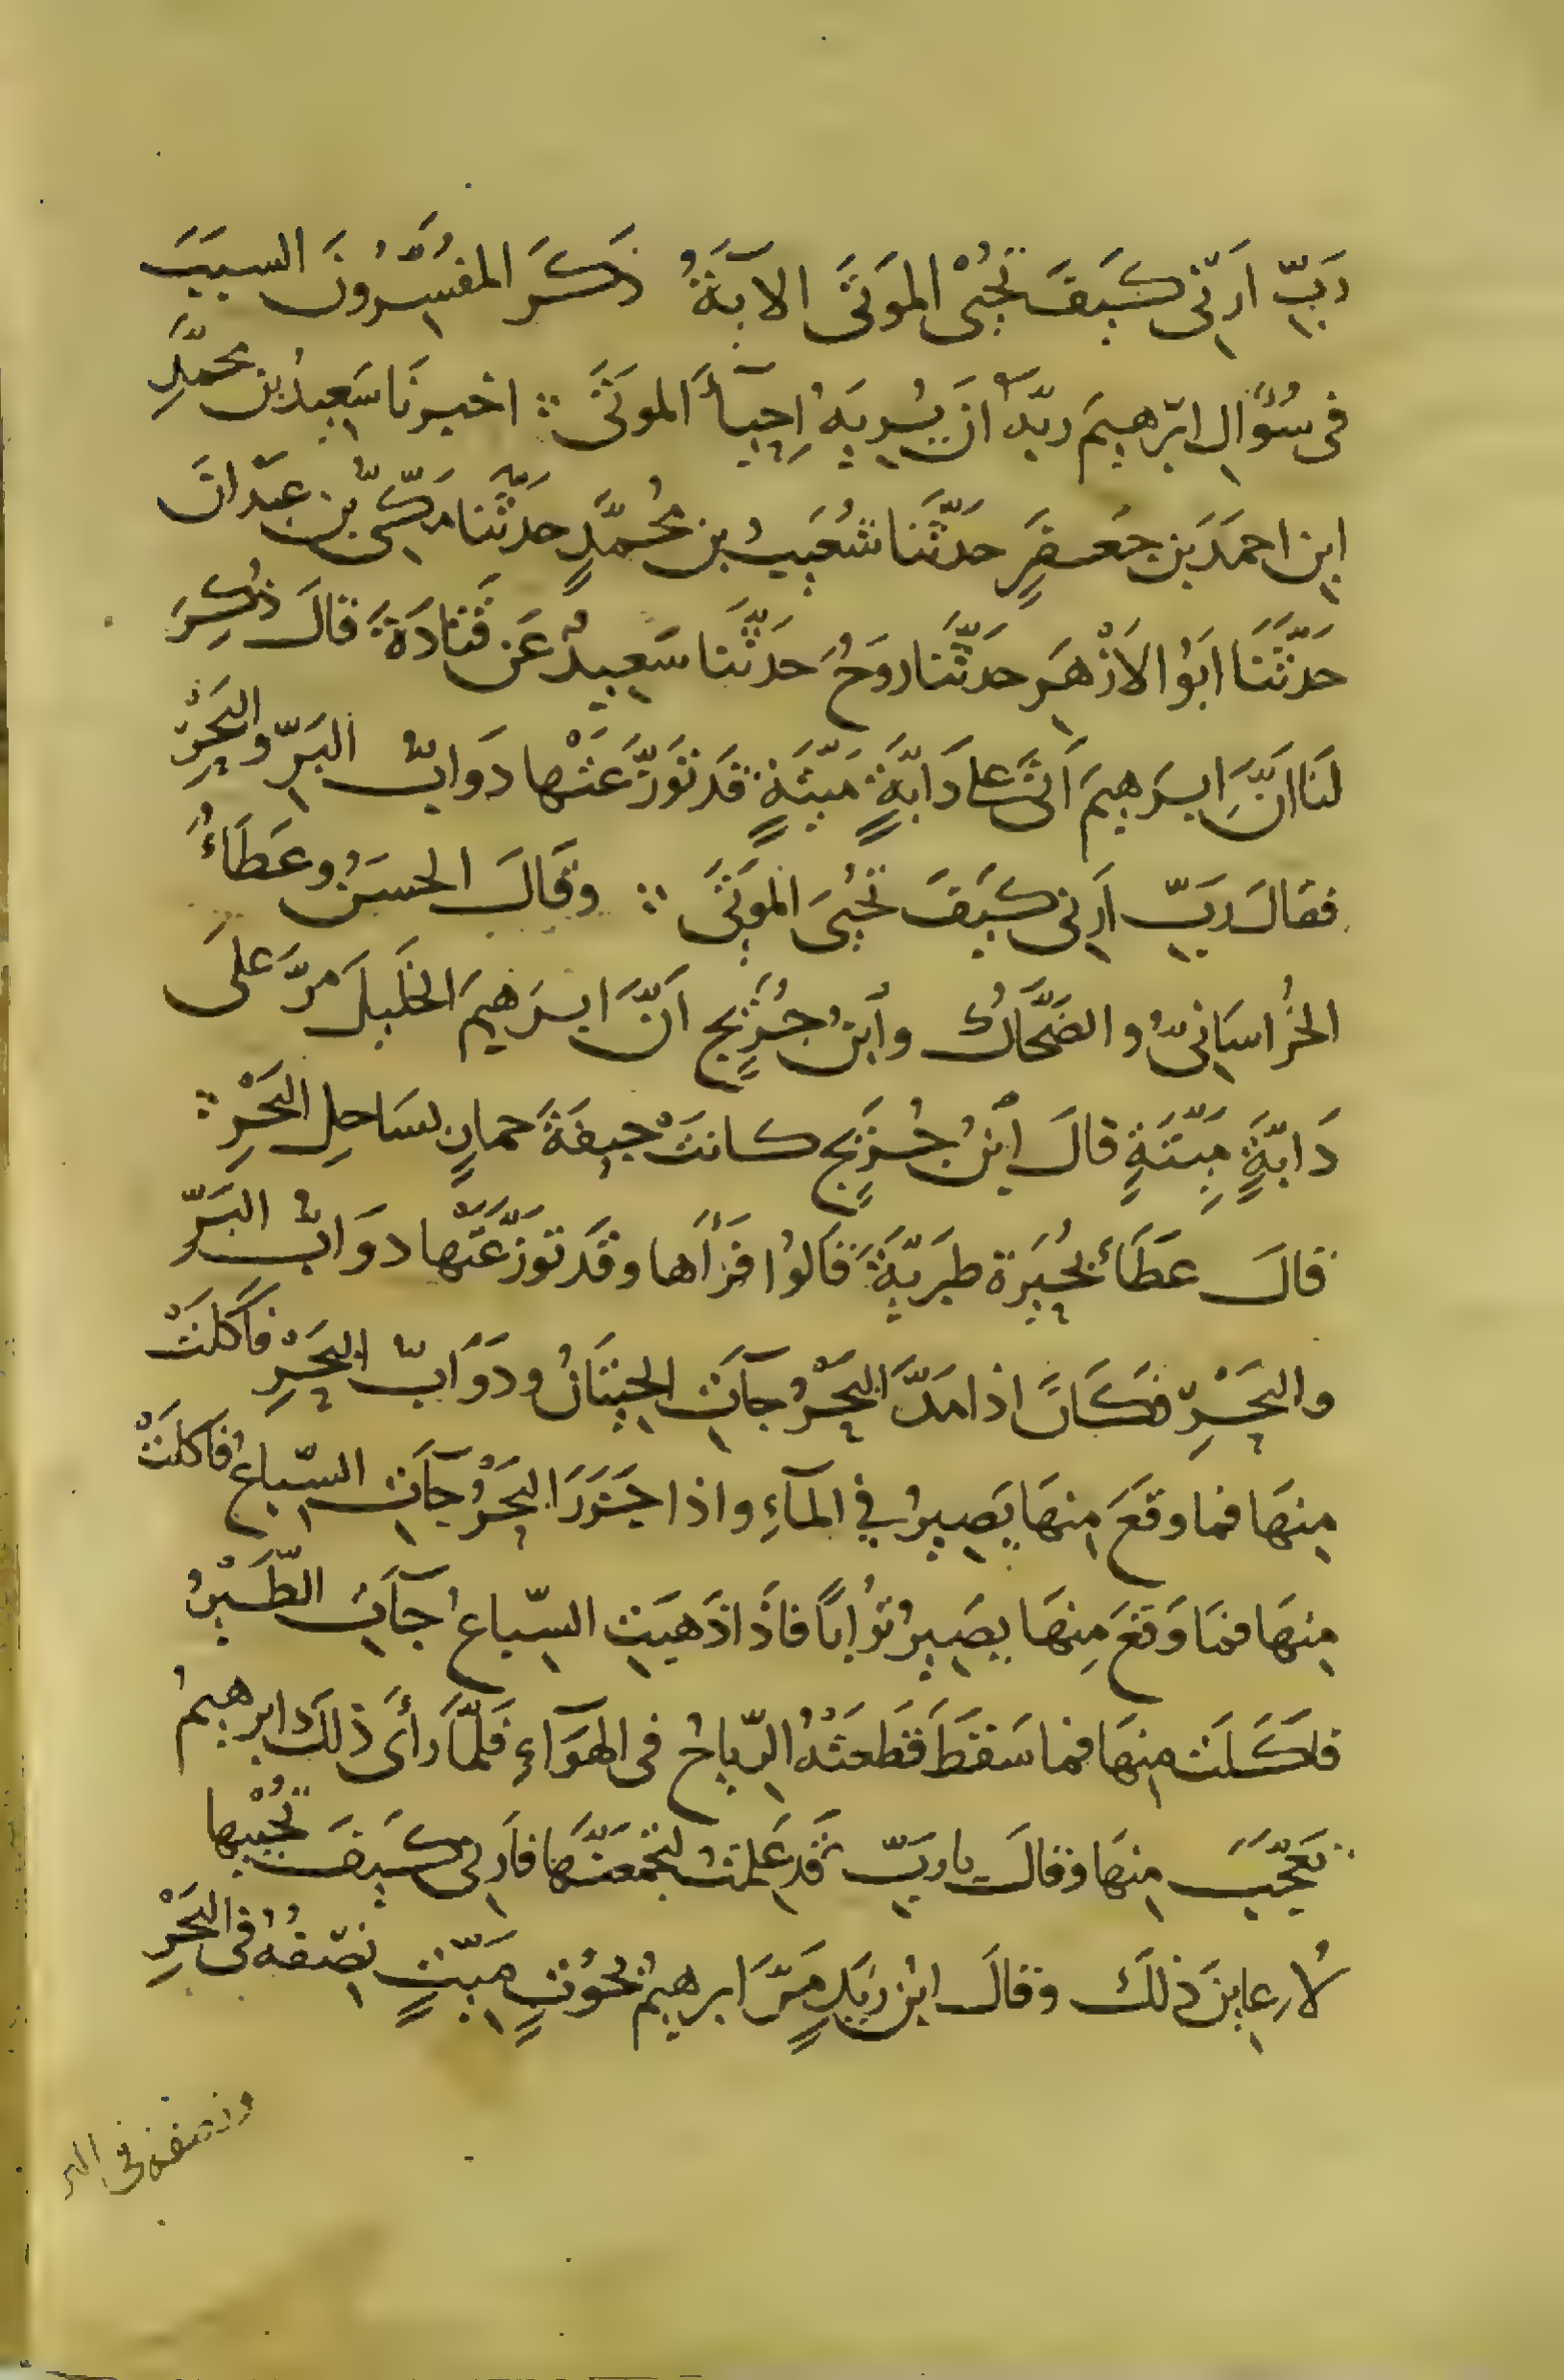 رَبِّ اَرِنِّى كَيَفَ تُحْيُى المَوَتَى الاَيَةُ ذَكَرَ المُفَسِّرُونَ السببَبَ
فى سُؤَالِ ابرٰهيمَ ربّهُ اَنَ يُرِيَهُ اِحِيآَ المَوتَى ؞ اخبرنَا سَعِيدُ بن محمَّدِ
ابنِ احمَدَ بن جَعفَرٍ حَدَثَّنا شُعَيبُ بن مُحمَّدٍ حَدَثَّنا مَكّىُّ بن عَبدانَ
حَدَثَّنَا ابَوُ الاَزْهَرِ حَدَثَّنَا رَوحُ حَدَثَّنا سَعِيدُ عَن قَتَادَةَ قالَ ذُكِرَ
لَنَا انَّ ابرَهيمَ اَتَى على دَابَّةٍ مَيّتَةٍ قَد تَوَزَّعَتْها دَوَابُّ البَرِّ والبَحْرِ
فقالَ رَبِّ اَرِنى كَيَفَ تُحيُىَ الموَتَى ؞ وقَالَ الحسَنُ وعَطَاءُ
الخُراسَانىُّ والضَحَّاكُ وأبنُ جُرَيجٍ اَنَّ ابرَهيَمَ الخَليلَ مرَّ علَى
دَابّةٍ مَيِّتَةٍ قالَ ابنُ جُرَيجٍ كانَتْ جيفَةَ حمارٍ بسَاحِلِ البَحْرِ ؞
قالَ عَطَاءُ بُحَيَرَة طَبَريّةَ قَالوُا فَرَأَها وقَد تَوزَّعَتها دوَابُّ البَرِّ
والبَحْرِ فكَانَ اذا مَدَّ البَحْرُ جآتِ الحِيتَانُ ودَوَابّ البَحْرِ فأكَلَتْ
مِنهَا فما وقعَ مِنهَا يَصِيرُ فى المآءِ واذا جَزَرَ البَحَرُ جآَتِ السّباعُ فاَكلَتْ
مِنهَا فمَا وَقَعَ مِنهَا يَصِيرُ تُرابًا فاذَا ذَهبَتِ السّباعُ جآَتِ الطَّيْرُ
فاَكَلَت مِنهَا فما سَقَطَ قَطَعَتْهُ الرّياحُ فى الهَوَآءِ فَلمَّا رَأَى ذلكَ ابرهيمُ
تعَجّبَ مِنهَا وقالَ يا رَبِّ قَد عَلمتُ لتجمَعَنَّها فاَرِنى كَيَفَ تُحْيِيها
لاُعاينَ ذلكَ وقالَ ابنُ زَيَدٍ مَرَّ ابرهيمُ بحُوُتٍ مَيّتٍ نِصّفُهُ فى البَحْرِ
ونصفه فى البر